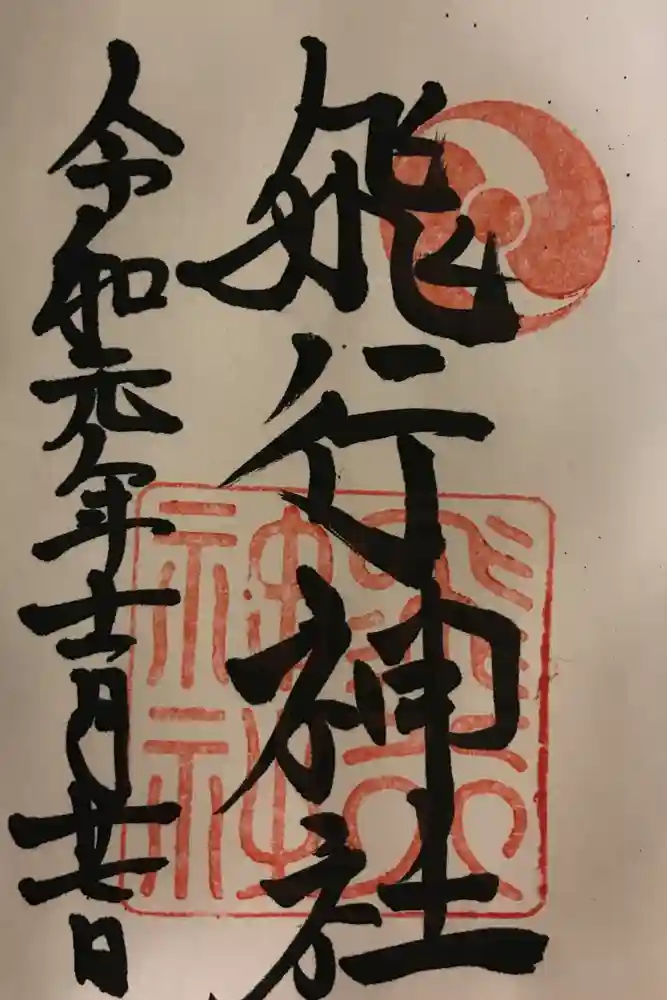 飛行神社
令和元年十一月廿七日